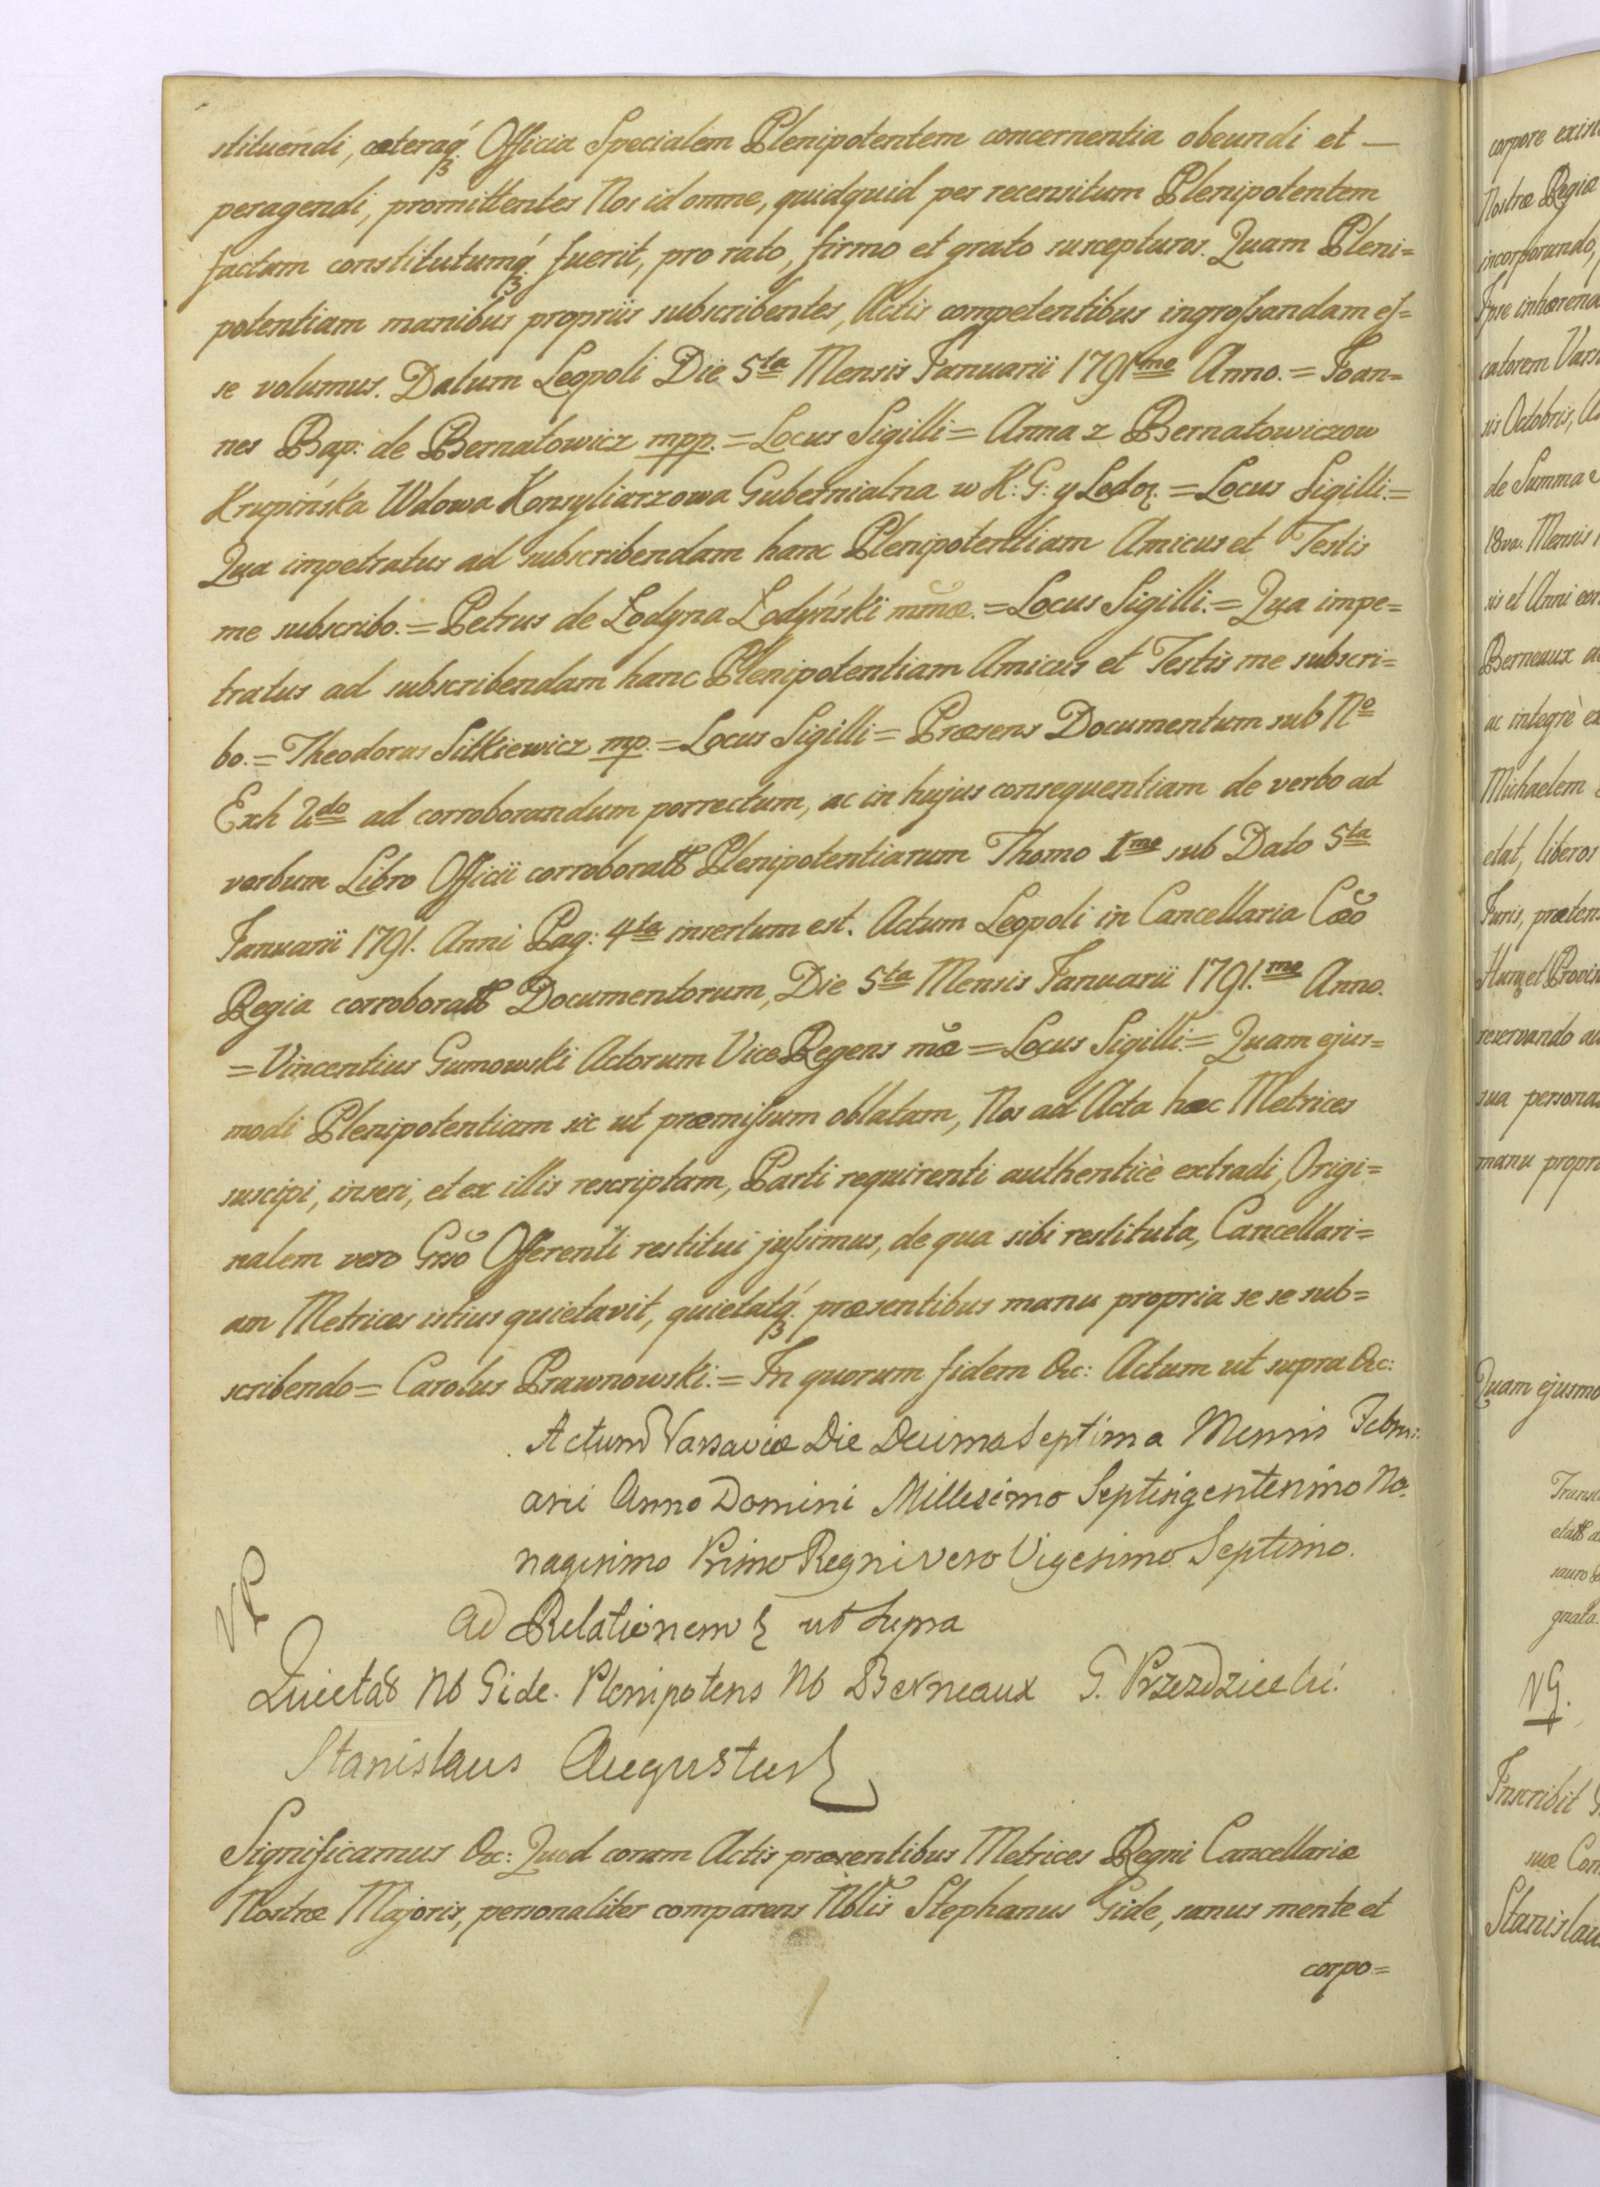 stituendi, cæteraq́ Officia Specialem Plenipotentem concernentia obeundi et —
peragendi, promittentes Nos id omne, quidquid per recensitum Plenipotentem
factum constitutumq́ fuerit, pro rato, firmo et grato suscepturos. Quam Pleni=
potentiam manibus propriis subscribentes, Actis competentibus ingroſsandam eſ=
se volumus. Datum Leopoli Die 5ta Mensis Januarii 1791mo Anno. = Joan=
nes Bap: de Bernatowicz mpp. = Locus Sigilli = Anna z Bernatowiczow
Krupińska Wdowa Konsyliarzowa Gubernialna w K: G: y Lodoꝝ. = Locus Sigilli. =
Qua impetratus ad subscribendam hanc Plenipotentiam Amicus et Testis
me subscribo. = Petrus de Łodyna Łodyński mũæ. = Locus Sigilli. = Qua impe=
tratus ad subscribendam hanc Plenipotentiam Amicus et Testis me subscri=
bo. = Theodorus Sitkiewicz mp. = Locus Sigilli = Præsens Documentum sub No
Exh 2do ad corroborandum porrectum, ac in hujus consequentiam de verbo ad
verbum Libro Officii corroborattꝫ Plenipotentiarum Thomo Imo sub Dato 5ta
Januarii 1791. Anni Pag: 4ta insertum est. Actum Leopoli in Cancellaria Cæõ
Regia corroborattꝫ Documentorum, Die 5ta Mensis Januarii 1791.mo Anno.
= Vincentius Gumowski Actorum Vice Regens mõæ = Locus Sigilli = Quam ejus=
modi Plenipotentiam sic ut præmiſsum oblatam, Nos ad Acta hæc Metrices
suscipi, inseri, et ex illis rescriptam, Parti requirenti authenticè extradi, Origi=
nalem vero Gnsõ Offerenti restitui juſsimus, de qua sibi restituta, Cancellari=
am Metrices istius quietavit, quietatq́ præsentibus manu propria se se sub=
scribendo = Carolus Prawnowski. = In quorum fidem &c: Actum ut supra &c:
Actum Varsaviæ Die Decima Septima Mensis Febru:
arii Anno Domini Millesimo Septingentesimo No.
nagesimo Primo Regni vero Vigesimo Septimo.
Ad Relationem ut supra
Quietat Nb Gide. Plenipotens Nb Berneaux G. Przezdziecki.
Stanislaus Augustus
Significamus &c: Quod coram Actis præsentibus Metrices Regni Cancellariæ
Nostræ Majoris, personaliter comparens Nblis Stephanus Gide, sanus mente et
corpo=
corpore exist
Nostræ Regiæ
incorporando,
catorem Vars
sis Octobris,
de Summa
18va. Mensis
sis et Anni
Berneaux
ac integrè
Michaelem
etat, liberos
Juris, præten
reservando
sua persona
manu propri
Quam ejusmo
Inscribit
suæ Con
Stanislau